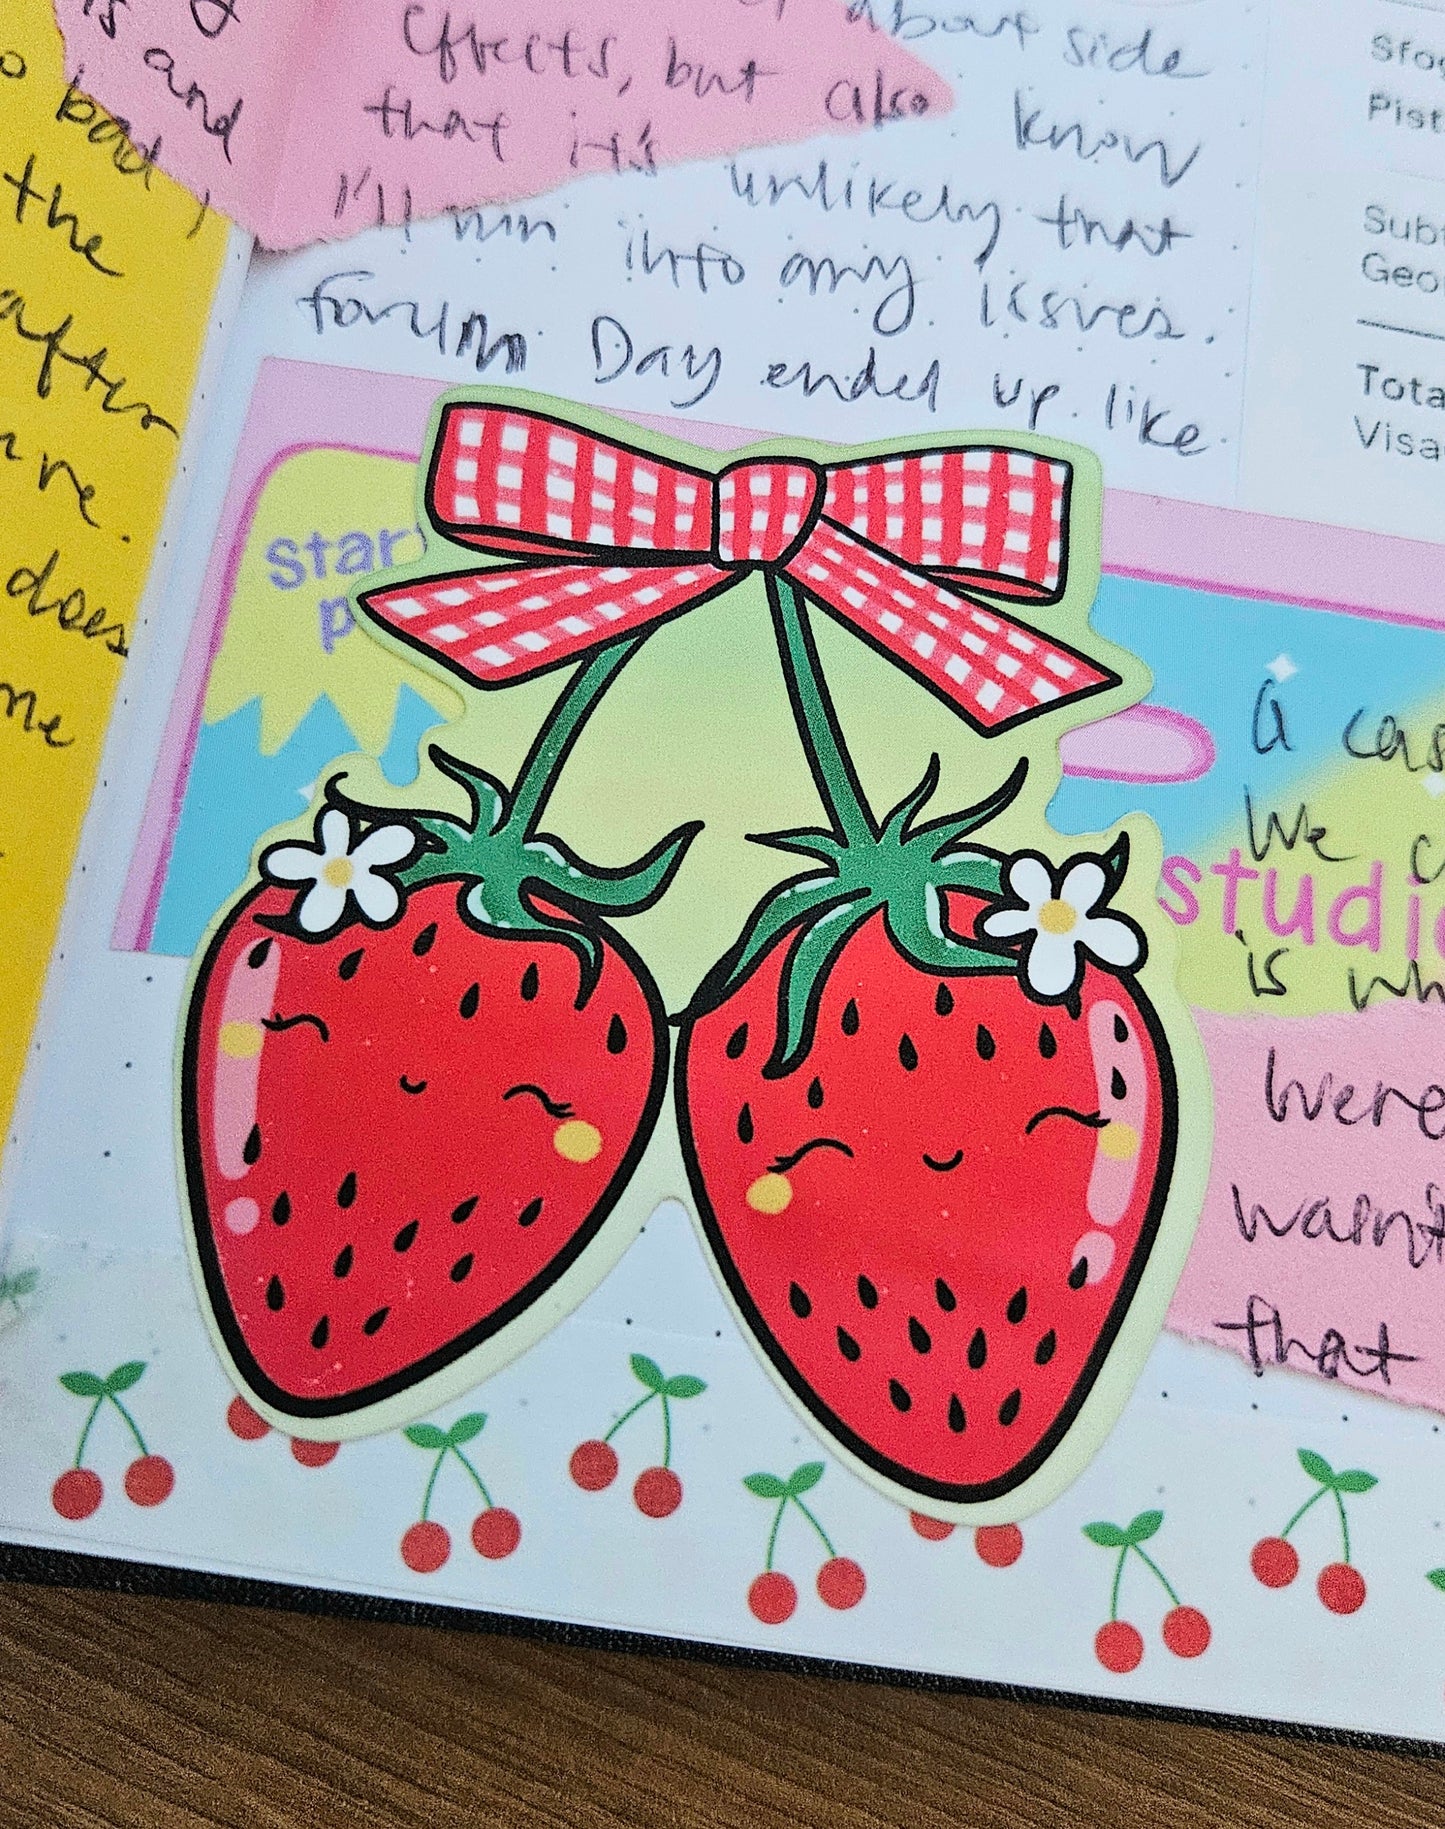 is and
bad,
the
after
does
me
about side
effects, but also know
that it's unlikely that
I'll run into any issues.
Forum Day ended up like
Total
Visa
star
a cas
We
studio
is wh
were
wasn't
that